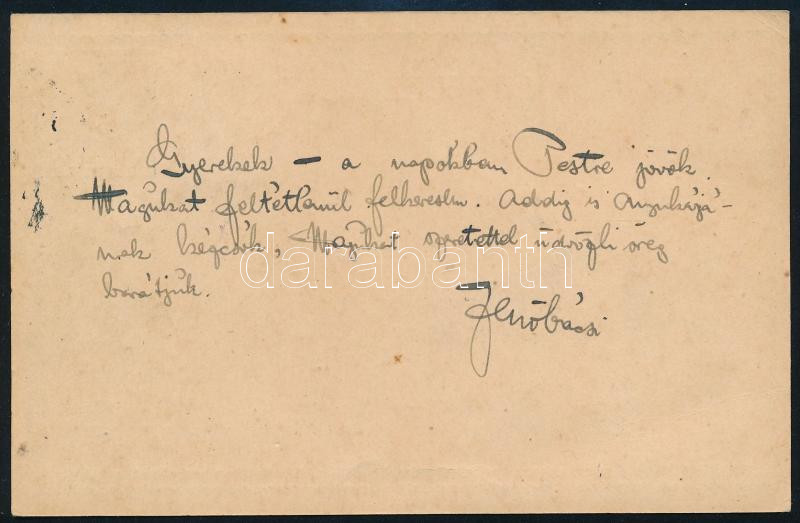 Gyerekek – a napokban Pestre jövök.
Magukat feltétlenül felkeresem. Addig is anyukájá-
nak kézcsók, Magukat szeretettel üdvözli öreg
barátjuk.
Jenőbácsi
darabanth.com